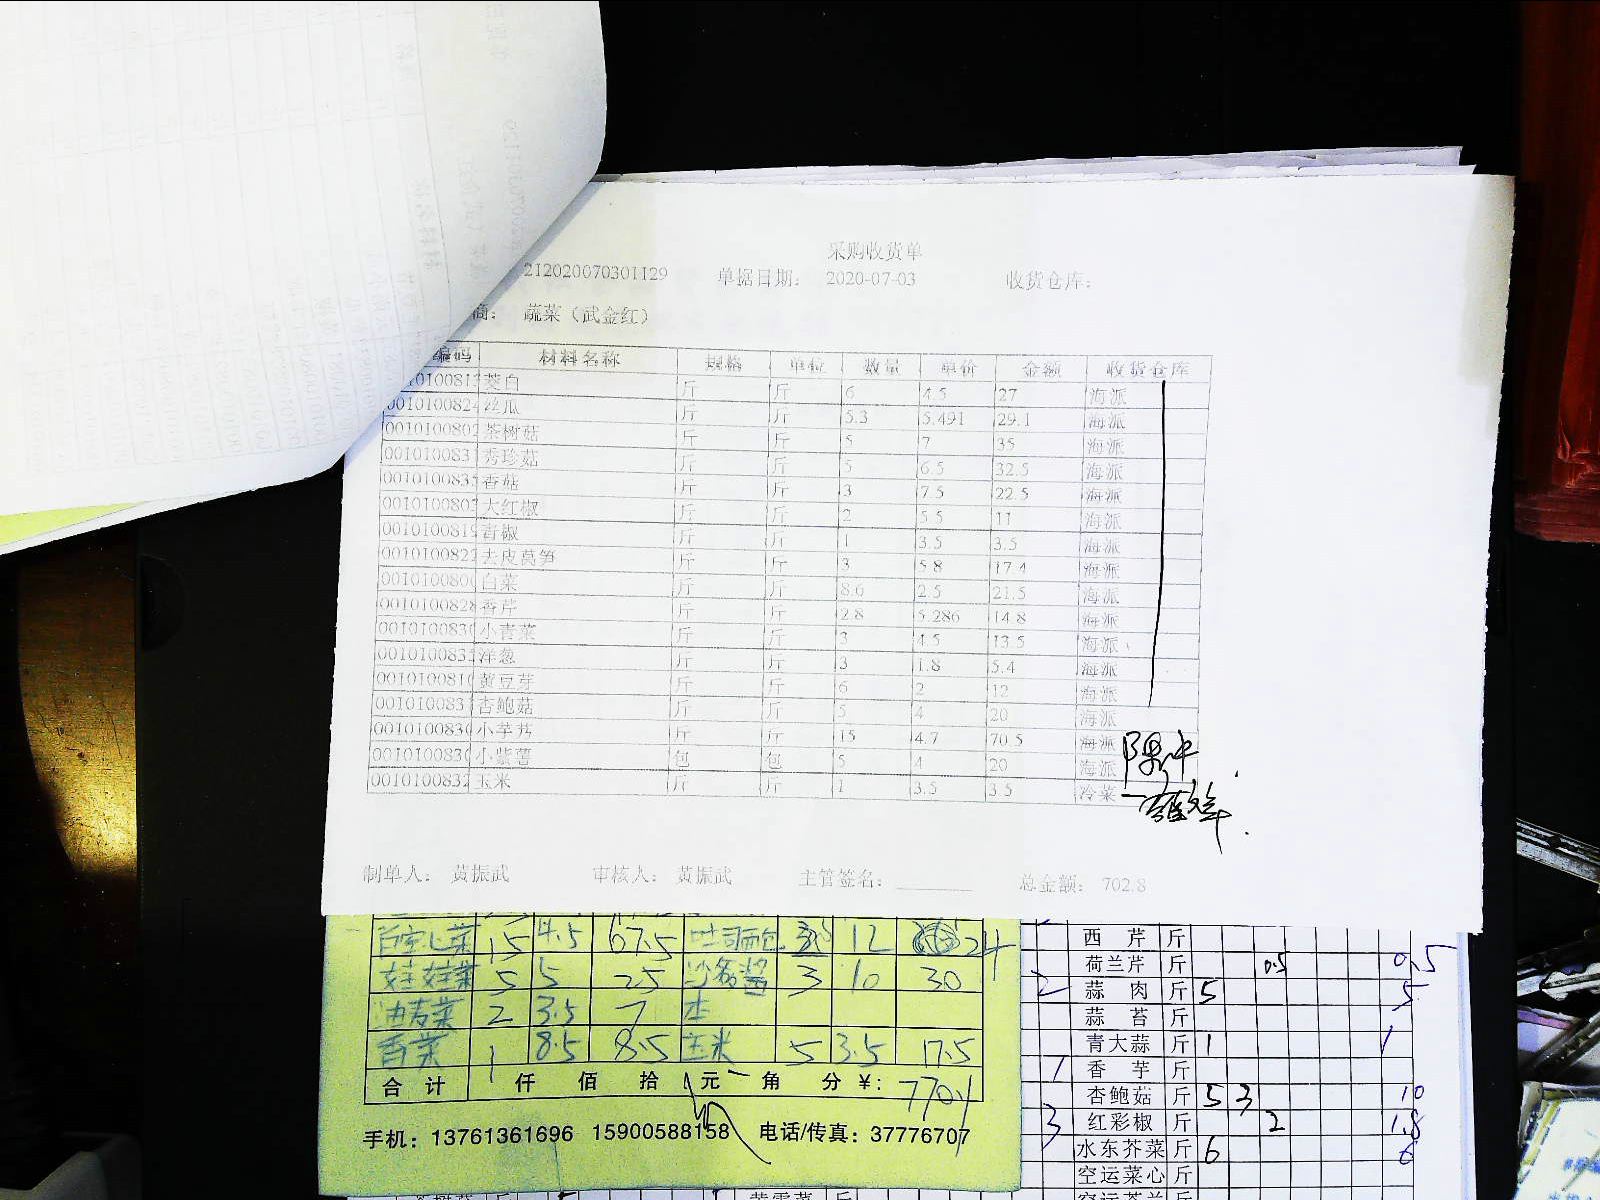 采购收货单
212020070301129 单据日期： 2020-07-03 收货仓库：
商： 蔬菜（武金红）
编码 材料名称 规格 单位 数量 单价 金额 收货仓库
010100813 茭白 斤 斤 6 4.5 27 海派
0010100824 丝瓜 斤 斤 5.3 5.491 29.1 海派
0010100802 茶树菇 斤 斤 5 7 35 海派
001010083 秀珍菇 斤 斤 5 6.5 32.5 海派
001010083 香菇 斤 斤 3 7.5 22.5 海派
001010080 大红椒 斤 斤 2 5.5 11 海派
0010100819 青椒 斤 斤 1 3.5 3.5 海派
0010100822 去皮莴笋 斤 斤 3 5.8 17.4 海派
0010100800 白菜 斤 斤 8.6 2.5 21.5 海派
0010100828 香芹 斤 斤 2.8 5.286 14.8 海派
001010083 小青菜 斤 斤 3 4.5 13.5 海派
001010083 洋葱 斤 斤 3 1.8 5.4 海派
0010100810 黄豆芽 斤 斤 6 2 12 海派
001010083 杏鲍菇 斤 斤 5 4 20 海派
001010083 小芋艿 斤 斤 15 4.7 70.5 海派
001010083 小紫薯 包 包 5 4 20 海派
0010100832 玉米 斤 斤 1 3.5 3.5 冷菜
制单人： 黄振武 审核人： 黄振武 主管签名： 总金额： 702.8
15 4.5 67.5 吐司面包 12 24
娃娃菜 5 5 25 沙茶酱 3 10 30
油麦菜 2 3.5 7 本
香菜 1 8.5 8.5 玉米 5 3.5 17.5
合计 仟 佰 拾 元 角 分 ¥： 770.1
手机：13761361696 15900588158 电话/传真：37776707
西芹 斤
荷兰芹 斤 0.5 0.5
2 蒜肉 斤 5 5
蒜苔 斤
青大蒜 斤 1 1
1 香芋 斤
杏鲍菇 斤 5 3 10
3 红彩椒 斤 2 1.8
水东芥菜 斤 6 6
空运菜心 斤